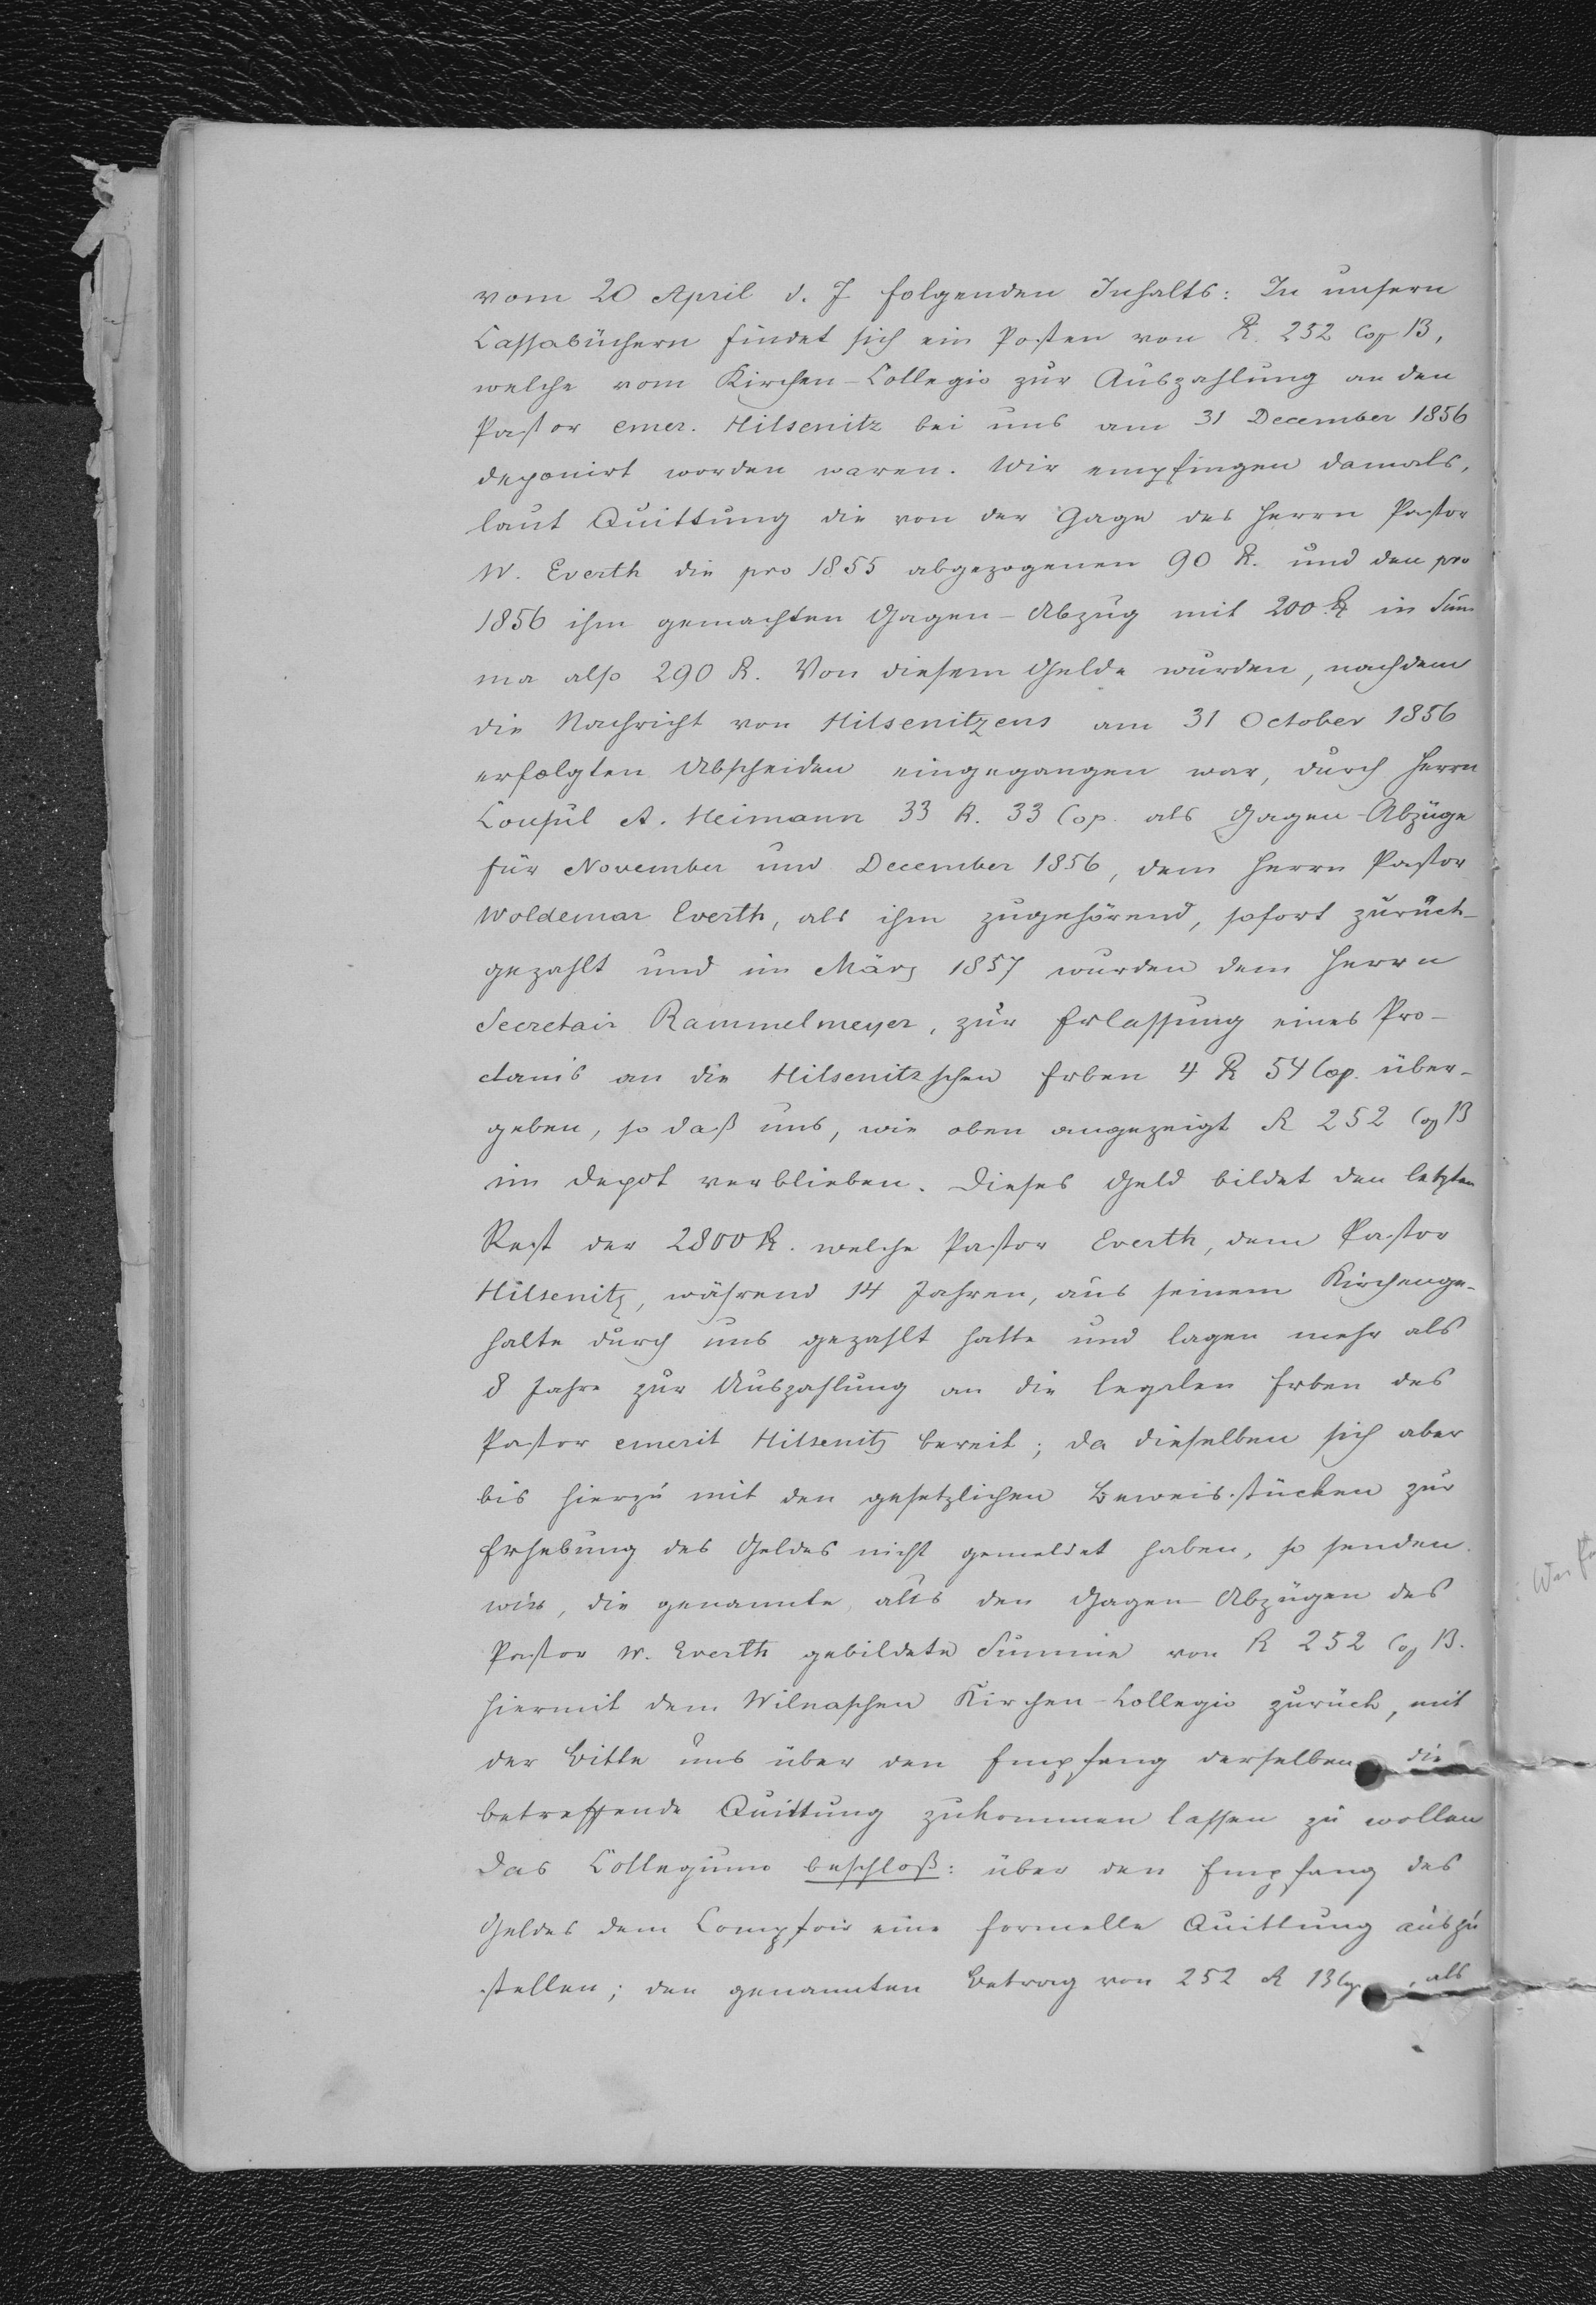 vom 20 April d. J folgenden Inhalts: In unsern
Cassabüchern findet sich ein Posten von R. 252 Cop 13,
welche vom Kirchen-Collegio zur Auszahlung an den
Pastor emer. Hilsenitz bei uns am 31 December 1856
deponirt worden waren. Wir empfingen damals,
laut Quittung die von der Gage des Herrn Pastor
W. Everth die pro 1855 abgezogenen 90 R. und den pro
1856 ihm gemachten Gagen-Abzug mit 200 R in Sum
ma also 290 R. Von diesem Gelde wurden, nachdem
die Nachricht von Hilsenitzens am 31 October 1856
erfolgten Abscheiden eingegangen war, durch Herrn
Consul A. Heimann 33 R. 33 Cop. als Gagen-Abzüge
für November und December 1856, dem Herrn Pastor
Woldemar Everth, als ihm zugehörend, sofort zurück-
gezahlt und im März 1857 wurden dem Herrn
Secretair Rammelmeyer, zur Erlassung eines Pro-
clams an die Hilsenitzschen Erben 4 R 54 Cop. über-
geben, so daß uns, wie oben angezeigt R 252 Cop 13
im Depot verblieben. Dieses Geld bildet den letzten
Rest der 2800 R. welche Pastor Everth, dem Pastor
Hilsenitz, während 14 Jahren, aus seinem Kirchenge-
halte durch uns gezahlt hatte und lagen mehr als
8 Jahre zur Auszahlung an die legalen Erben des
Pastor emerit Hilsenitz bereit; da dieselben sich aber
bis hierzu mit den gesetzlichen Beweisstücken zur
Erhebung des Geldes nicht gemeldet haben, so senden
wir, die genannte, aus den Gagen-Abzügen des
Pastor W. Everth gebildete Summe von R 252 Cop 13.
hiermit dem Wilnaschen Kirchen-Collegio zurück, mit
der Bitte uns über den Empfang derselben die
betreffende Quittung zukommen lassen zu wollen
Das Collegium beschloß: über den Empfang des
Geldes dem Comptoir eine formelle Quittung auszu
stellen; den genannten Betrag von 252 R 13 Cop, als